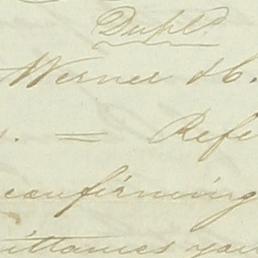 Dupld.
Werner & C.
. = Refe
confirming
ittances you